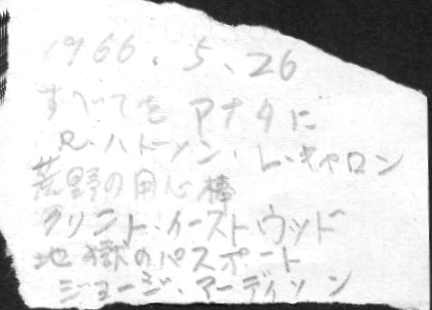 1966.5.26
すべてをアナタに
R・ハドソン・L・キャロン
荒野の用心棒
クリント・イーストウッド
地獄のパスポート
ジョージ・アーディソン